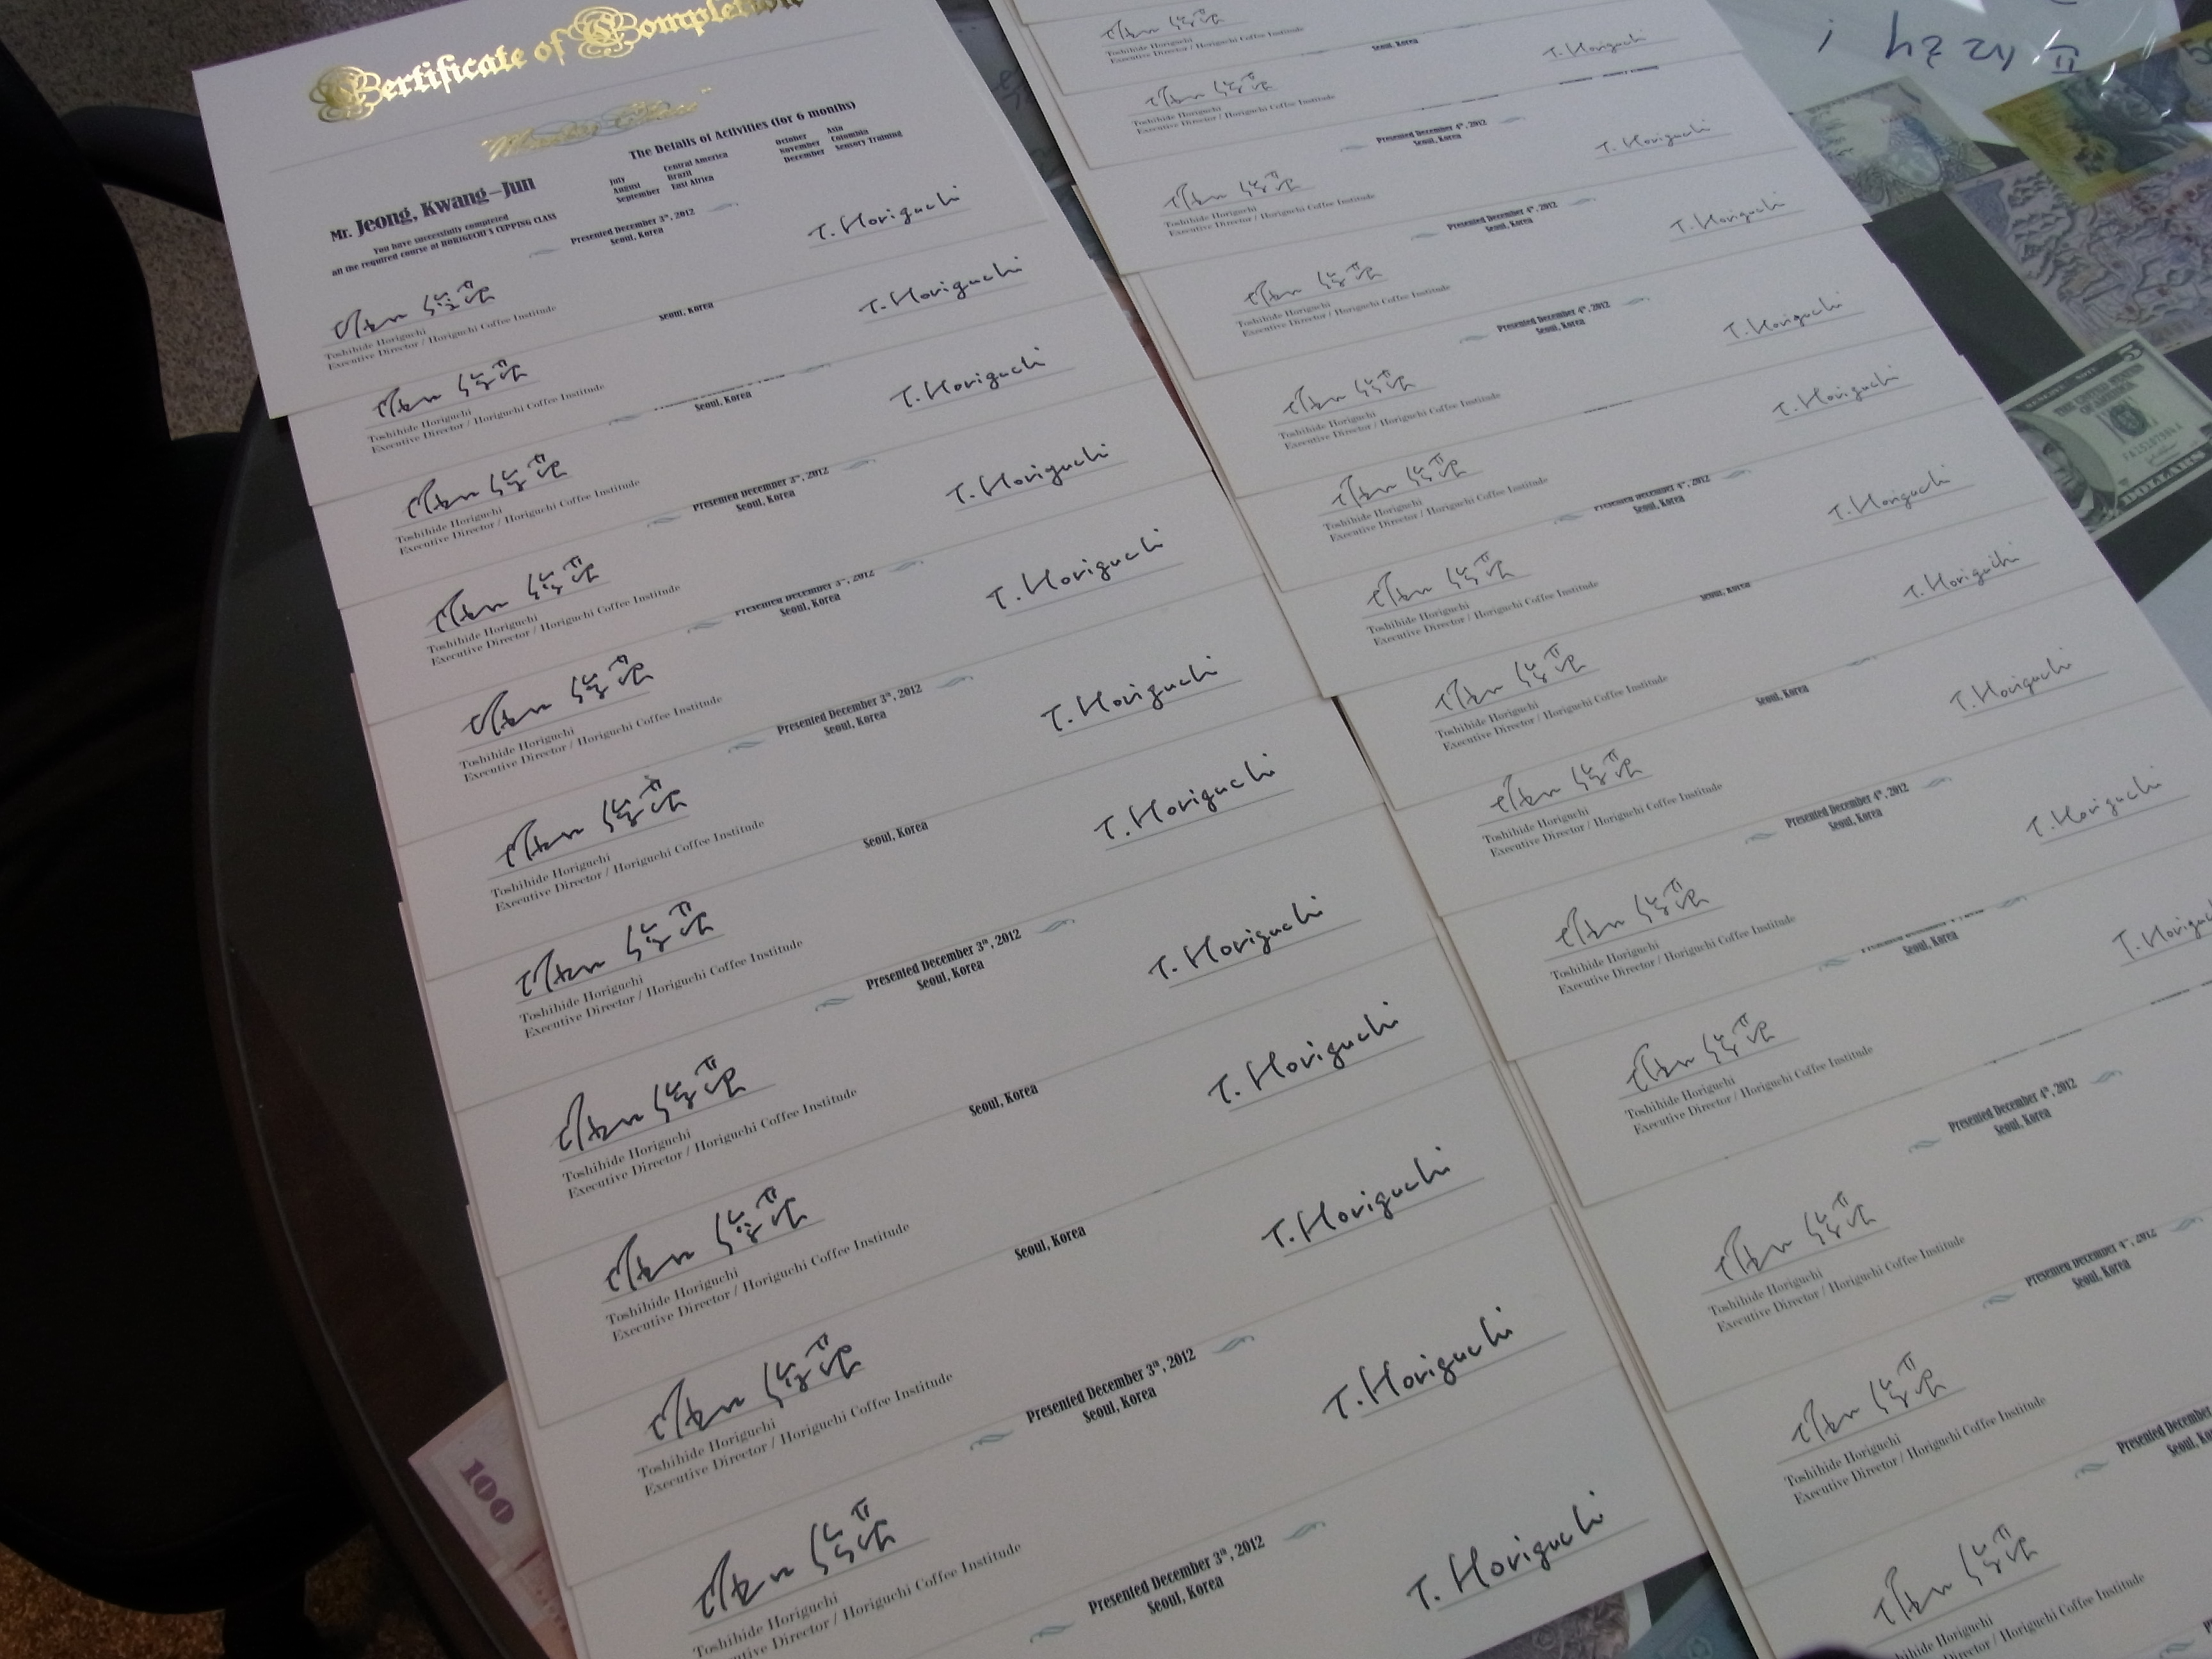 Certificate of Completion
"Master Class"
The Details of Activities (for 6 months)
July Central America October Asia
August Brazil November Colombia
September East Africa December Sensory Training
Mr. Jeong, Kwang-Jun
You have successfully completed
all the required course at HORIGUCHI'S CUPPING CLASS
Presented December 3th, 2012
Seoul, Korea
T. Horiguchi
Toshihide Horiguchi
Executive Director / Horiguchi Coffee Institude
Seoul, Korea
T. Horiguchi
Toshihide Horiguchi
Executive Director / Horiguchi Coffee Institude
Seoul, Korea
T. Horiguchi
Toshihide Horiguchi
Executive Director / Horiguchi Coffee Institude
Presented December 3th, 2012
Seoul, Korea
T. Horiguchi
Toshihide Horiguchi
Executive Director / Horiguchi Coffee Institude
Presented December 3th, 2012
Seoul, Korea
T. Horiguchi
Toshihide Horiguchi
Executive Director / Horiguchi Coffee Institude
Presented December 3th, 2012
Seoul, Korea
T. Horiguchi
Toshihide Horiguchi
Executive Director / Horiguchi Coffee Institude
Seoul, Korea
T. Horiguchi
Toshihide Horiguchi
Executive Director / Horiguchi Coffee Institude
Presented December 3th, 2012
Seoul, Korea
T. Horiguchi
Toshihide Horiguchi
Executive Director / Horiguchi Coffee Institude
Seoul, Korea
T. Horiguchi
Toshihide Horiguchi
Executive Director / Horiguchi Coffee Institude
Seoul, Korea
T. Horiguchi
Toshihide Horiguchi
Executive Director / Horiguchi Coffee Institude
Presented December 3th, 2012
Seoul, Korea
T. Horiguchi
Toshihide Horiguchi
Executive Director / Horiguchi Coffee Institude
Presented December 3th, 2012
Seoul, Korea
T. Horiguchi
100
Toshihide Horiguchi
Executive Director / Horiguchi Coffee Institude
Seoul, Korea
T. Horiguchi
Toshihide Horiguchi
Executive Director / Horiguchi Coffee Institude
Presented December 4th, 2012
Seoul, Korea
T. Horiguchi
Toshihide Horiguchi
Executive Director / Horiguchi Coffee Institude
Presented December 4th, 2012
Seoul, Korea
T. Horiguchi
Toshihide Horiguchi
Executive Director / Horiguchi Coffee Institude
Presented December 4th, 2012
Seoul, Korea
T. Horiguchi
Toshihide Horiguchi
Executive Director / Horiguchi Coffee Institude
T. Horiguchi
Toshihide Horiguchi
Executive Director / Horiguchi Coffee Institude
Presented December 4th, 2012
Seoul, Korea
T. Horiguchi
Toshihide Horiguchi
Executive Director / Horiguchi Coffee Institude
Seoul, Korea
T. Horiguchi
Toshihide Horiguchi
Executive Director / Horiguchi Coffee Institude
Seoul, Korea
T. Horiguchi
Toshihide Horiguchi
Executive Director / Horiguchi Coffee Institude
Presented December 4th, 2012
Seoul, Korea
T. Horiguchi
Toshihide Horiguchi
Executive Director / Horiguchi Coffee Institude
Seoul, Korea
Toshihide Horiguchi
Executive Director / Horiguchi Coffee Institude
Presented December 4th, 2012
Seoul, Korea
Toshihide Horiguchi
Executive Director / Horiguchi Coffee Institude
Presented December 4th, 2012
Seoul, Korea
Toshihide Horiguchi
Executive Director / Horiguchi Coffee Institude
Presented December
Toshihide Horiguchi
Executive Director / Horiguchi Coffee Institude
5
THE UNITED STATES
OF AMERICA
DOLLARS